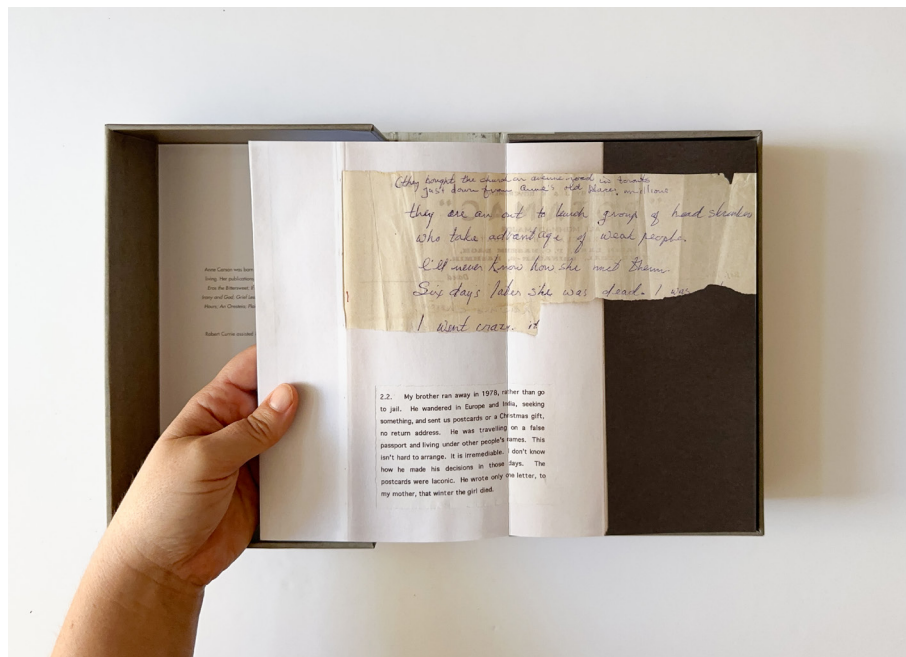 Anne Carson was born
living. Her publications
Eros the Bittersweet,
Irony and God,
Robert Currie assisted
(they bought the church on avenue road in toronto
just down from Anne's old place,
they are an out to lunch group of head shrinkers
who take advantage of weak people.
I'll never know how she met them.
Six days later she was dead. I was
I went crazy. it
2.2. My brother ran away in 1978, rather than go
to jail. He wandered in Europe and India, seeking
something, and sent us postcards or a Christmas gift,
no return address. He was travelling on a false
passport and living under other people's names. This
isn't hard to arrange. It is irremediable. I don't know
how he made his decisions in those days. The
postcards were laconic. He wrote only one letter, to
my mother, that winter the girl died.